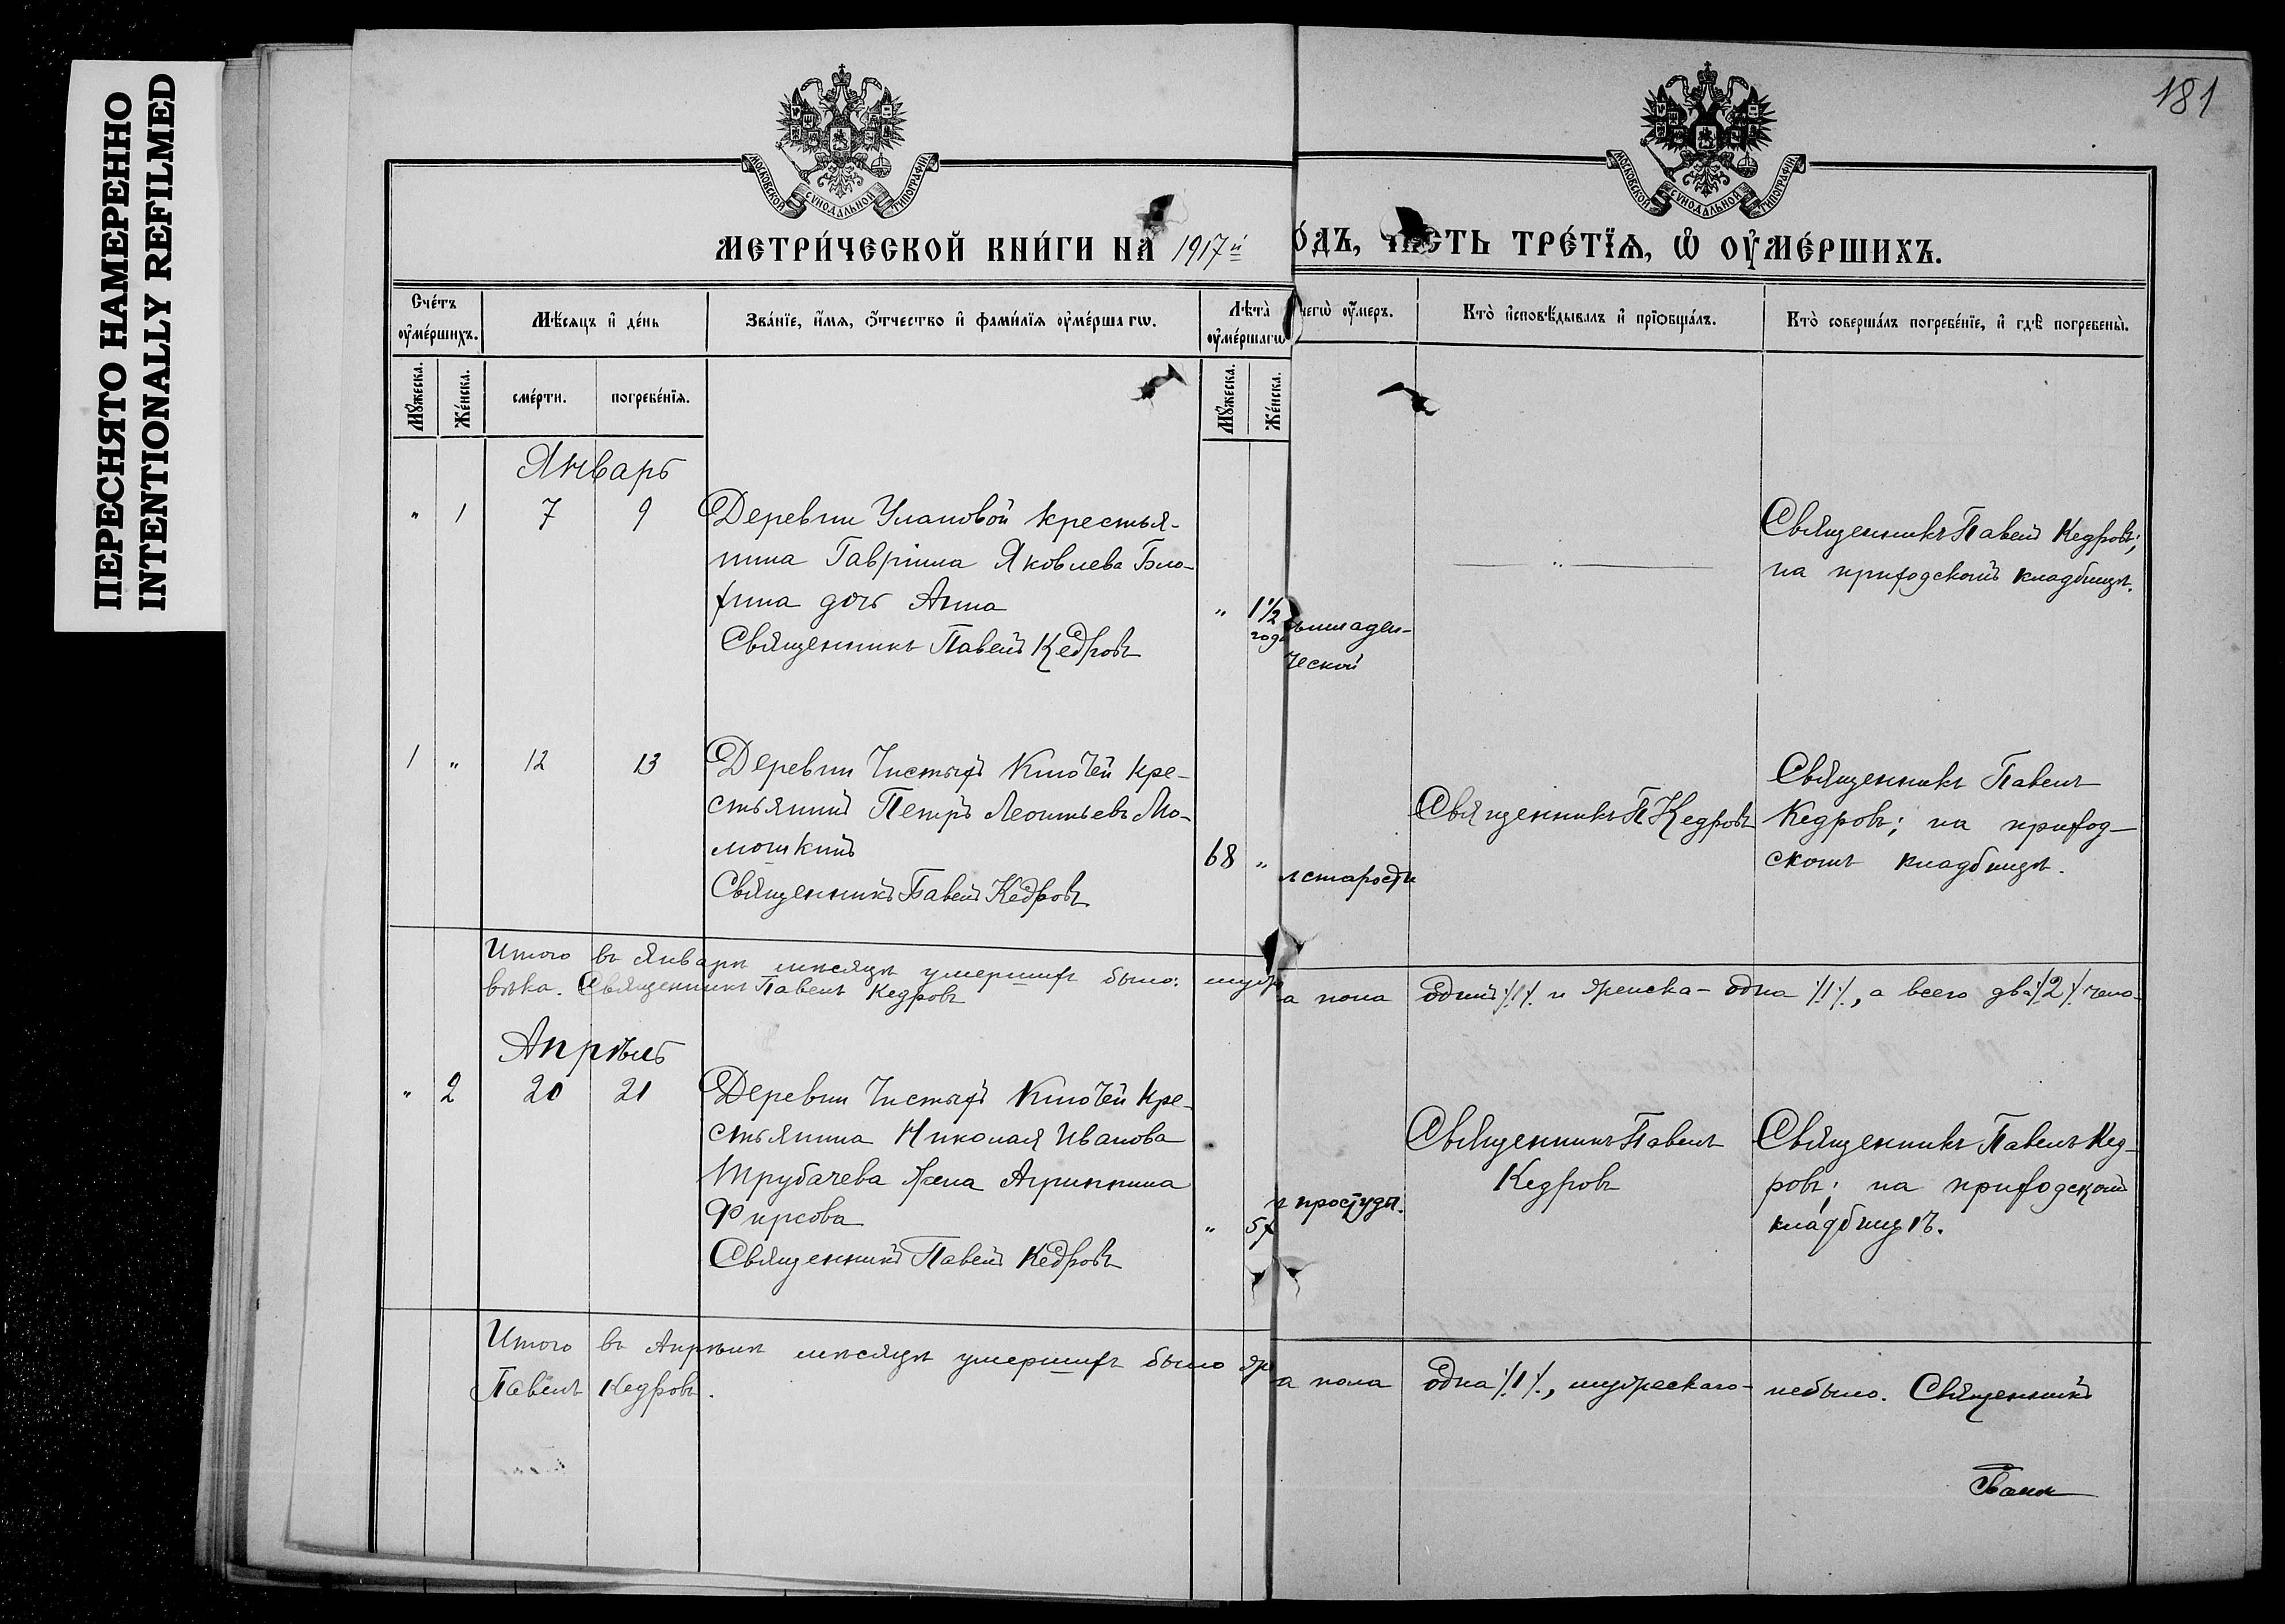 ПЕРЕСНЯТО НАМЕРЕННО
INTENTIONALLY REFILMED
181
МОСКОВСКОЙ СѴНОДАЛЬНОЙ ТИПОГРАФІИ
МОСКОВСКОЙ СѴНОДАЛЬНОЙ ТИПОГРАФІИ
МЕТРИ́ЧЕСКОЙ КНИ́ГИ НА 1917й
ОДЪ, ЧАСТЬ ТРЕ́ТІѦ, Ѡ ОУ҆МЕ́РШИХЪ.
Сче́тъ оу҆ме́ршихъ.
Мѣ́сѧцъ и҆ де́нь
Зва́нїе, и҆́мѧ, ѻ҆́тчество и҆ фами́лїѧ оу҆ме́ршагѡ.
Лѣта̀ оу҆ме́ршагѡ
чегѡ̀ оу҆́меръ.
Кто̀ и҆сповѣ́дывалъ и҆ прїѡбща́лъ.
Кто̀ соверша́лъ погребе́нїе, и҆ гдѣ̀ погребены̀.
Мꙋ́жеска.
Же́нска.
сме́рти.
погребе́нїѧ.
Мꙋ́жеска.
Же́нска.
Январь
" 1 7 9
Деревни Улановой крестья-
нина Гавріила Яковлева Бло-
хина дочь Анна
Священникъ Павелъ Кедровъ
" 1½ года
младен-
ческой
"
Священникъ Павелъ Кедровъ;
на приходскомъ кладбищѣ.
1 " 12 13
Деревни Чистыхъ Ключей кре-
стьянинъ Петръ Леонтьевъ Мо-
мошкинъ
Священникъ Павелъ Кедровъ
68 "
старости
Священникъ П Кедровъ
Священникъ Павелъ
Кедровъ; на приход-
скомъ кладбищѣ.
Итого въ Январѣ мѣсяцѣ умершихъ было: муж а пола одинъ ./.1./. и женска - одна ./.1./., а всего два ./.2./. чело-
вѣка. Священникъ Павелъ Кедровъ
Апрѣль
" 2 20 21
Деревни Чистыхъ Ключей кре-
стьянина Николая Иванова
Трубачева жена Агриппина
Фирсова
Священникъ Павелъ Кедровъ
" 57
простуды.
Священникъ Павелъ
Кедровъ
Священникъ Павелъ Кед-
ровъ; на приходскомъ
кладбищѣ.
Итого въ Апрѣлѣ мѣсяцѣ умершихъ было же а пола одна ./.1./., мужескаго - небыло. Священникъ
Павелъ Кедровъ.